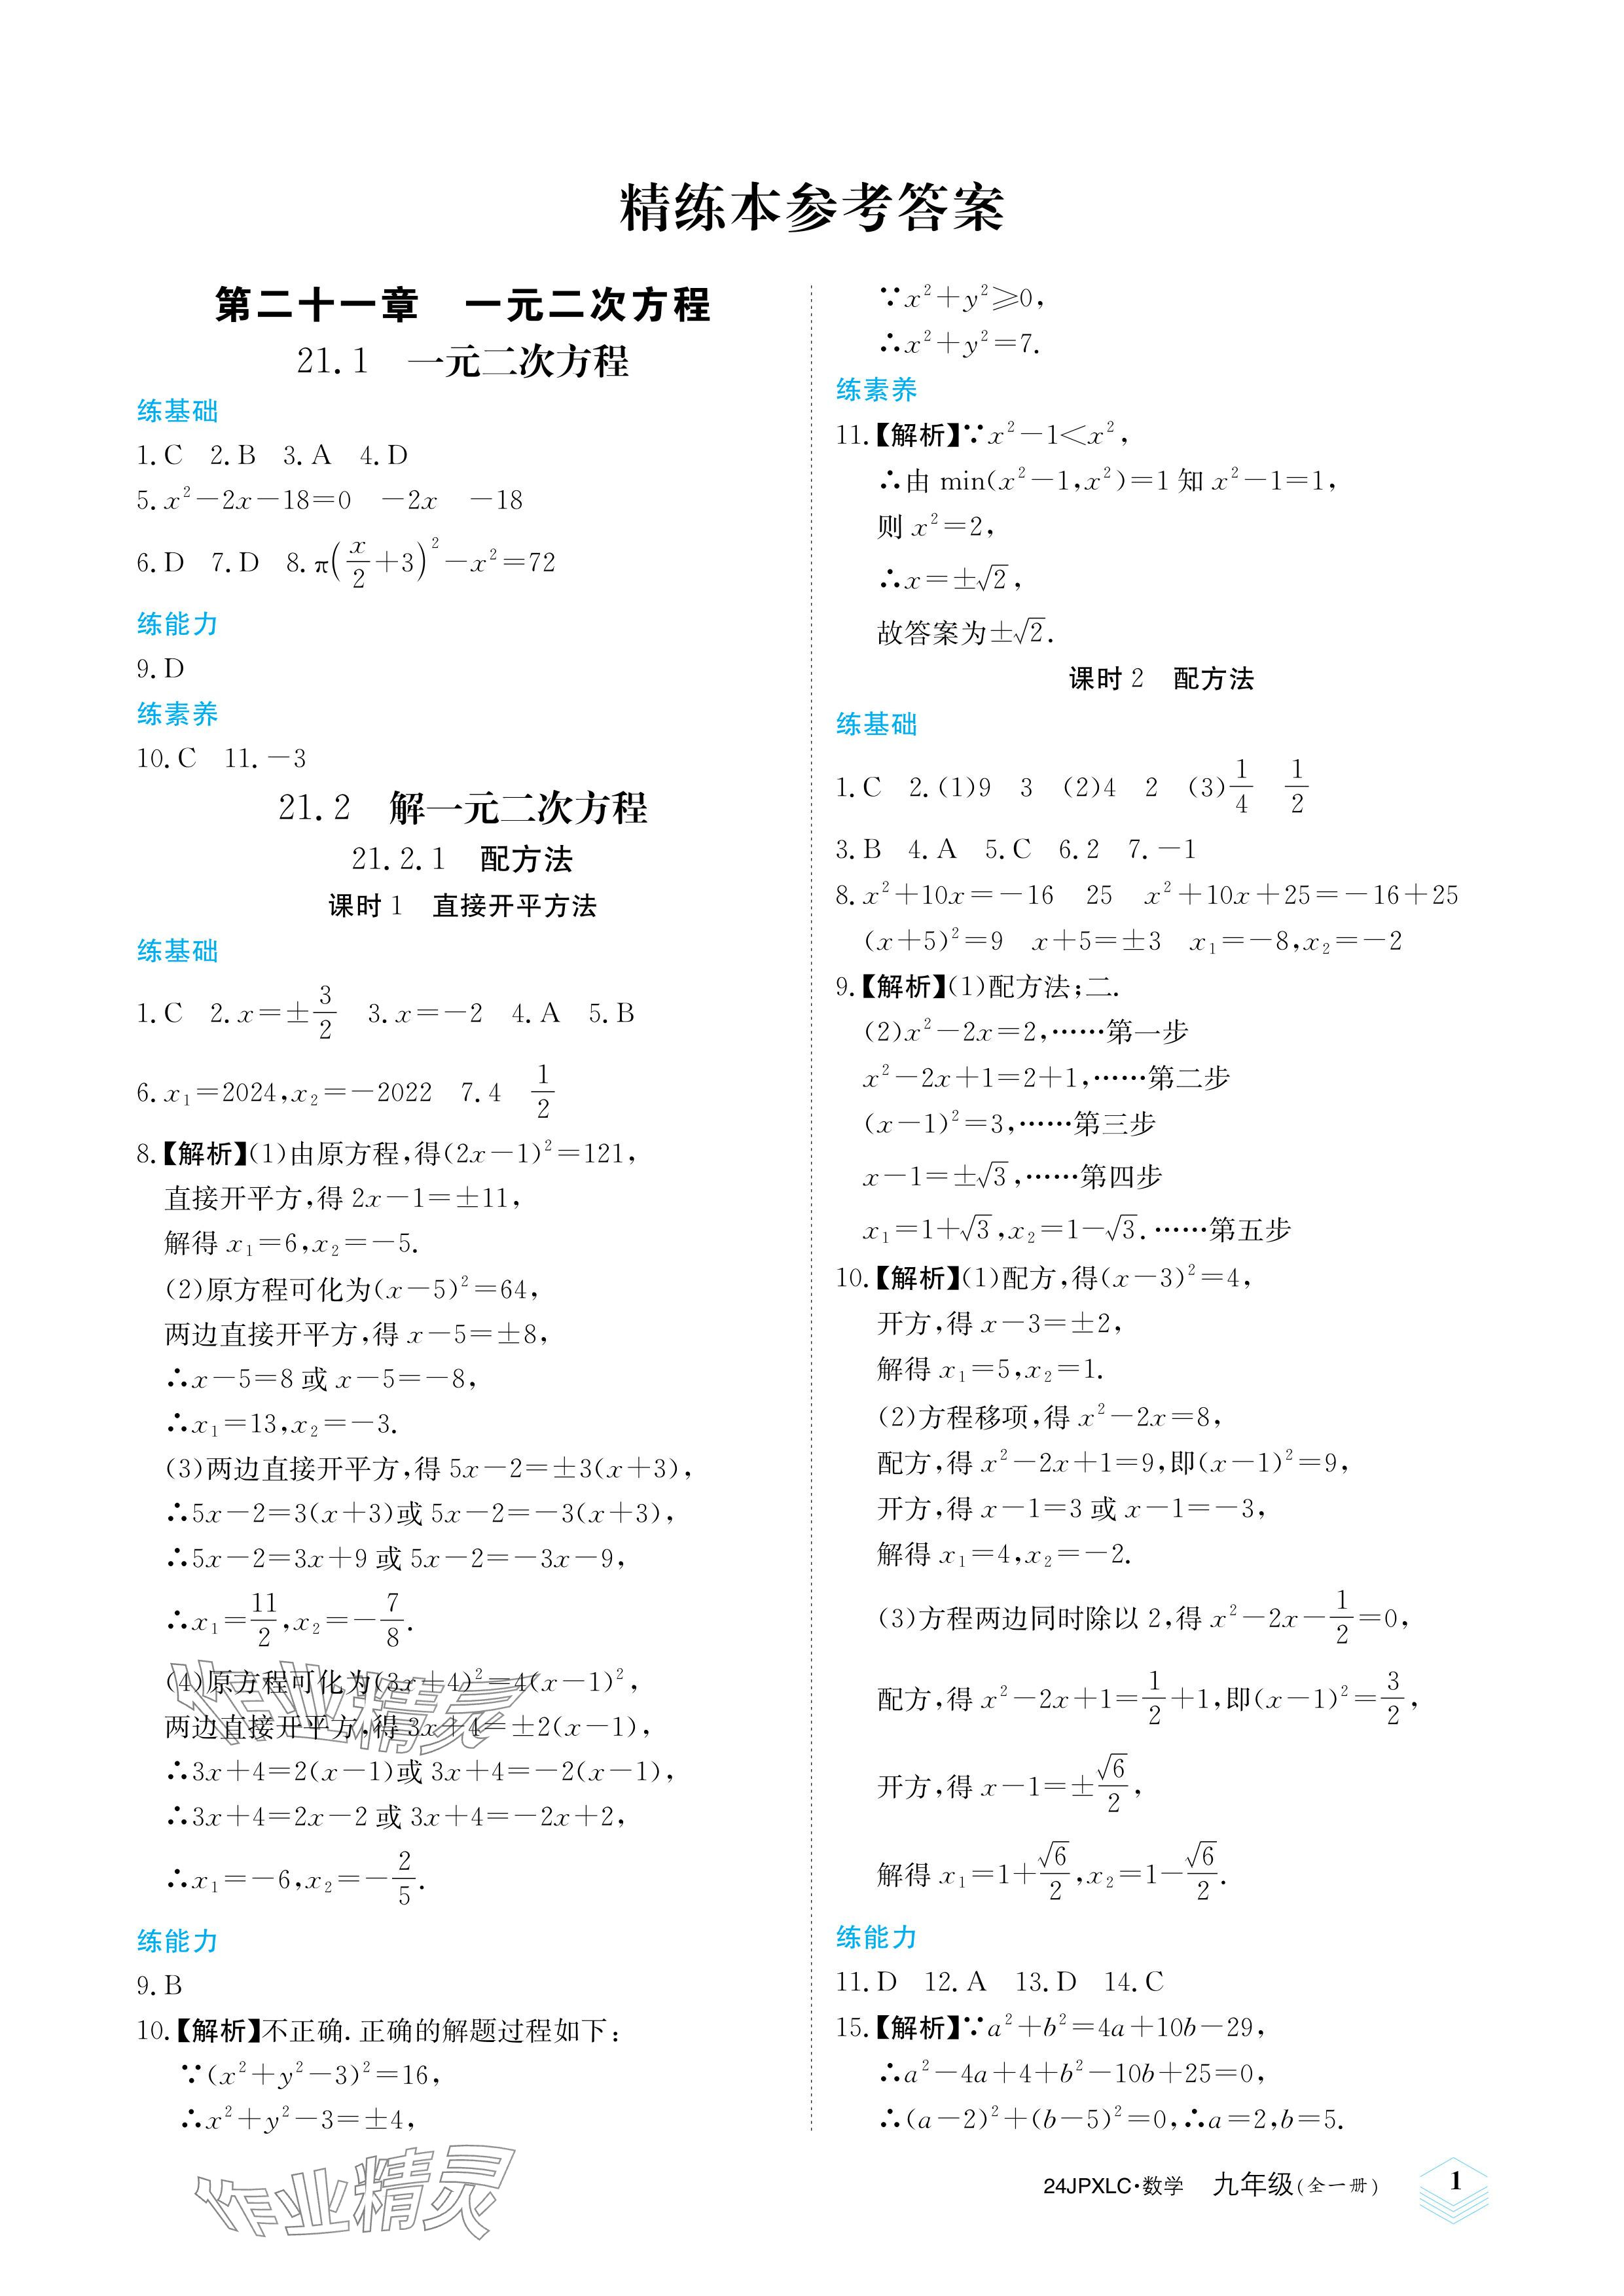 精练本参考答案
第二十一章　一元二次方程
21.1　一元二次方程
练基础
1.C　2.B　3.A　4.D
5.x²－2x－18＝0　－2x　－18
6.D　7.D　8.π(x/2＋3)²－x²＝72
练能力
9.D
练素养
10.C　11.－3
21.2　解一元二次方程
21.2.1　配方法
课时1　直接开平方法
练基础
1.C　2.x＝±3/2　3.x＝－2　4.A　5.B
6.x₁＝2024,x₂＝－2022　7.4　1/2
8.【解析】(1)由原方程,得(2x－1)²＝121,
直接开平方,得2x－1＝±11,
解得x₁＝6,x₂＝－5.
(2)原方程可化为(x－5)²＝64,
两边直接开平方,得x－5＝±8,
∴x－5＝8或x－5＝－8,
∴x₁＝13,x₂＝－3.
(3)两边直接开平方,得5x－2＝±3(x＋3),
∴5x－2＝3(x＋3)或5x－2＝－3(x＋3),
∴5x－2＝3x＋9或5x－2＝－3x－9,
∴x₁＝11/2,x₂＝－7/8.
(4)原方程可化为(3x＋4)²＝4(x－1)²,
两边直接开平方,得3x＋4＝±2(x－1),
∴3x＋4＝2(x－1)或3x＋4＝－2(x－1),
∴3x＋4＝2x－2或3x＋4＝－2x＋2,
∴x₁＝－6,x₂＝－2/5.
练能力
9.B
10.【解析】不正确.正确的解题过程如下:
∵(x²＋y²－3)²＝16,
∴x²＋y²－3＝±4,
∵x²＋y²≥0,
∴x²＋y²＝7.
练素养
11.【解析】∵x²－1＜x²,
∴由min(x²－1,x²)＝1知x²－1＝1,
则x²＝2,
∴x＝±√2,
故答案为±√2.
课时2　配方法
练基础
1.C　2.(1)9　3　(2)4　2　(3)1/4　1/2
3.B　4.A　5.C　6.2　7.－1
8.x²＋10x＝－16　25　x²＋10x＋25＝－16＋25
(x＋5)²＝9　x＋5＝±3　x₁＝－8,x₂＝－2
9.【解析】(1)配方法;二.
(2)x²－2x＝2,……第一步
x²－2x＋1＝2＋1,……第二步
(x－1)²＝3,……第三步
x－1＝±√3,……第四步
x₁＝1＋√3,x₂＝1－√3.……第五步
10.【解析】(1)配方,得(x－3)²＝4,
开方,得x－3＝±2,
解得x₁＝5,x₂＝1.
(2)方程移项,得x²－2x＝8,
配方,得x²－2x＋1＝9,即(x－1)²＝9,
开方,得x－1＝3或x－1＝－3,
解得x₁＝4,x₂＝－2.
(3)方程两边同时除以2,得x²－2x－1/2＝0,
配方,得x²－2x＋1＝1/2＋1,即(x－1)²＝3/2,
开方,得x－1＝±√6/2,
解得x₁＝1＋√6/2,x₂＝1－√6/2.
练能力
11.D　12.A　13.D　14.C
15.【解析】∵a²＋b²＝4a＋10b－29,
∴a²－4a＋4＋b²－10b＋25＝0,
∴(a－2)²＋(b－5)²＝0,∴a＝2,b＝5.
作业精灵
作业精灵
24JPXLC·数学　九年级(全一册)　1